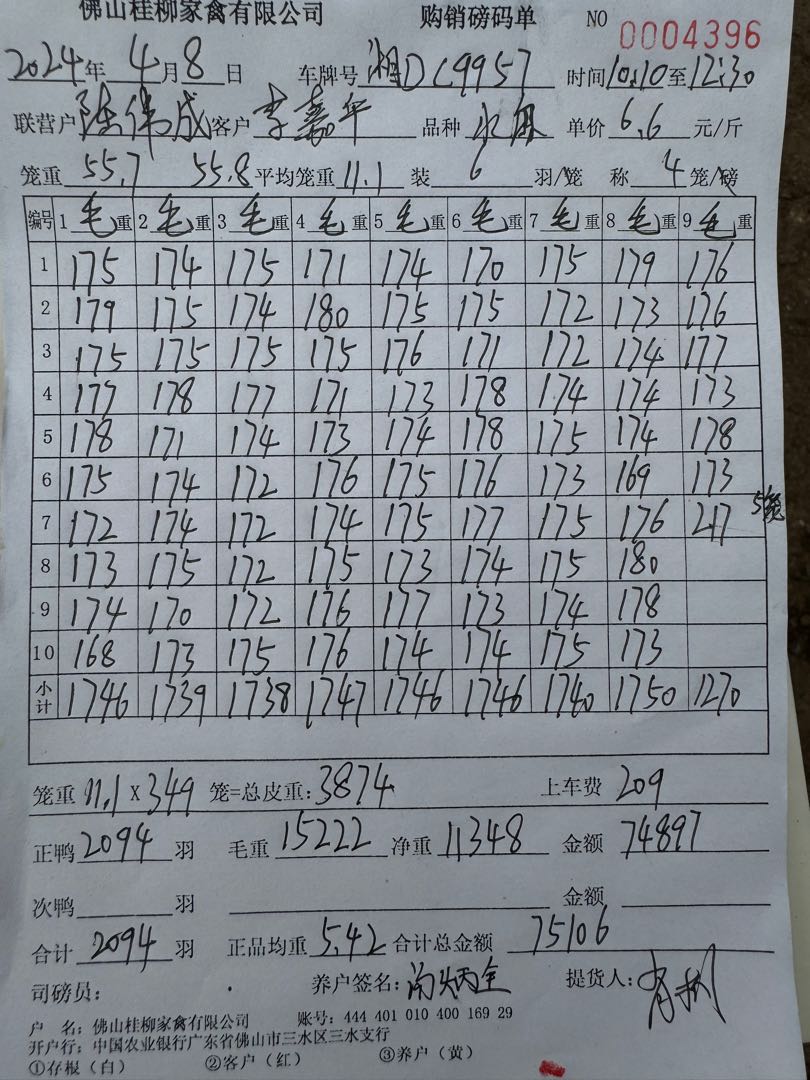 佛山桂柳家禽有限公司 购销磅码单 NO 0004396
2024年 4月 8日 车牌号 湘DC9957 时间10:10至12:30
联营户 陈伟成 客户 李嘉华 品种 单价 6.6 元/斤
笼重 55.7 55.8 平均笼重 11.1 装 6 羽/笼 称 4 笼/磅
编号 1毛重 2毛重 3毛重 4毛重 5毛重 6毛重 7毛重 8毛重 9毛重
1 175 174 175 171 174 170 175 179 176
2 179 175 174 180 175 175 172 173 176
3 175 175 175 175 176 171 172 174 177
4 177 178 177 171 173 178 174 174 173
5 178 171 174 173 174 178 175 174 178
6 175 174 172 176 175 176 173 169 173
7 172 174 172 174 175 177 175 176 217 5笼
8 173 175 172 175 173 174 175 180
9 174 170 172 176 177 173 174 178
10 168 173 175 176 174 174 175 173
小计 1746 1739 1738 1747 1746 1746 1740 1750 1270
笼重 11.1 X 349 笼=总皮重:3874 上车费 209
正鸭 2094 羽 毛重 15222 净重 11348 金额 74897
次鸭 羽 金额
合计 2094 羽 正品均重 5.42 合计总金额 75106
司磅员: 养户签名: 提货人:
户 名:佛山桂柳家禽有限公司 账号:444 401 010 400 169 29
开户行:中国农业银行广东省佛山市三水区三水支行
①存根(白) ②客户(红) ③养户(黄)